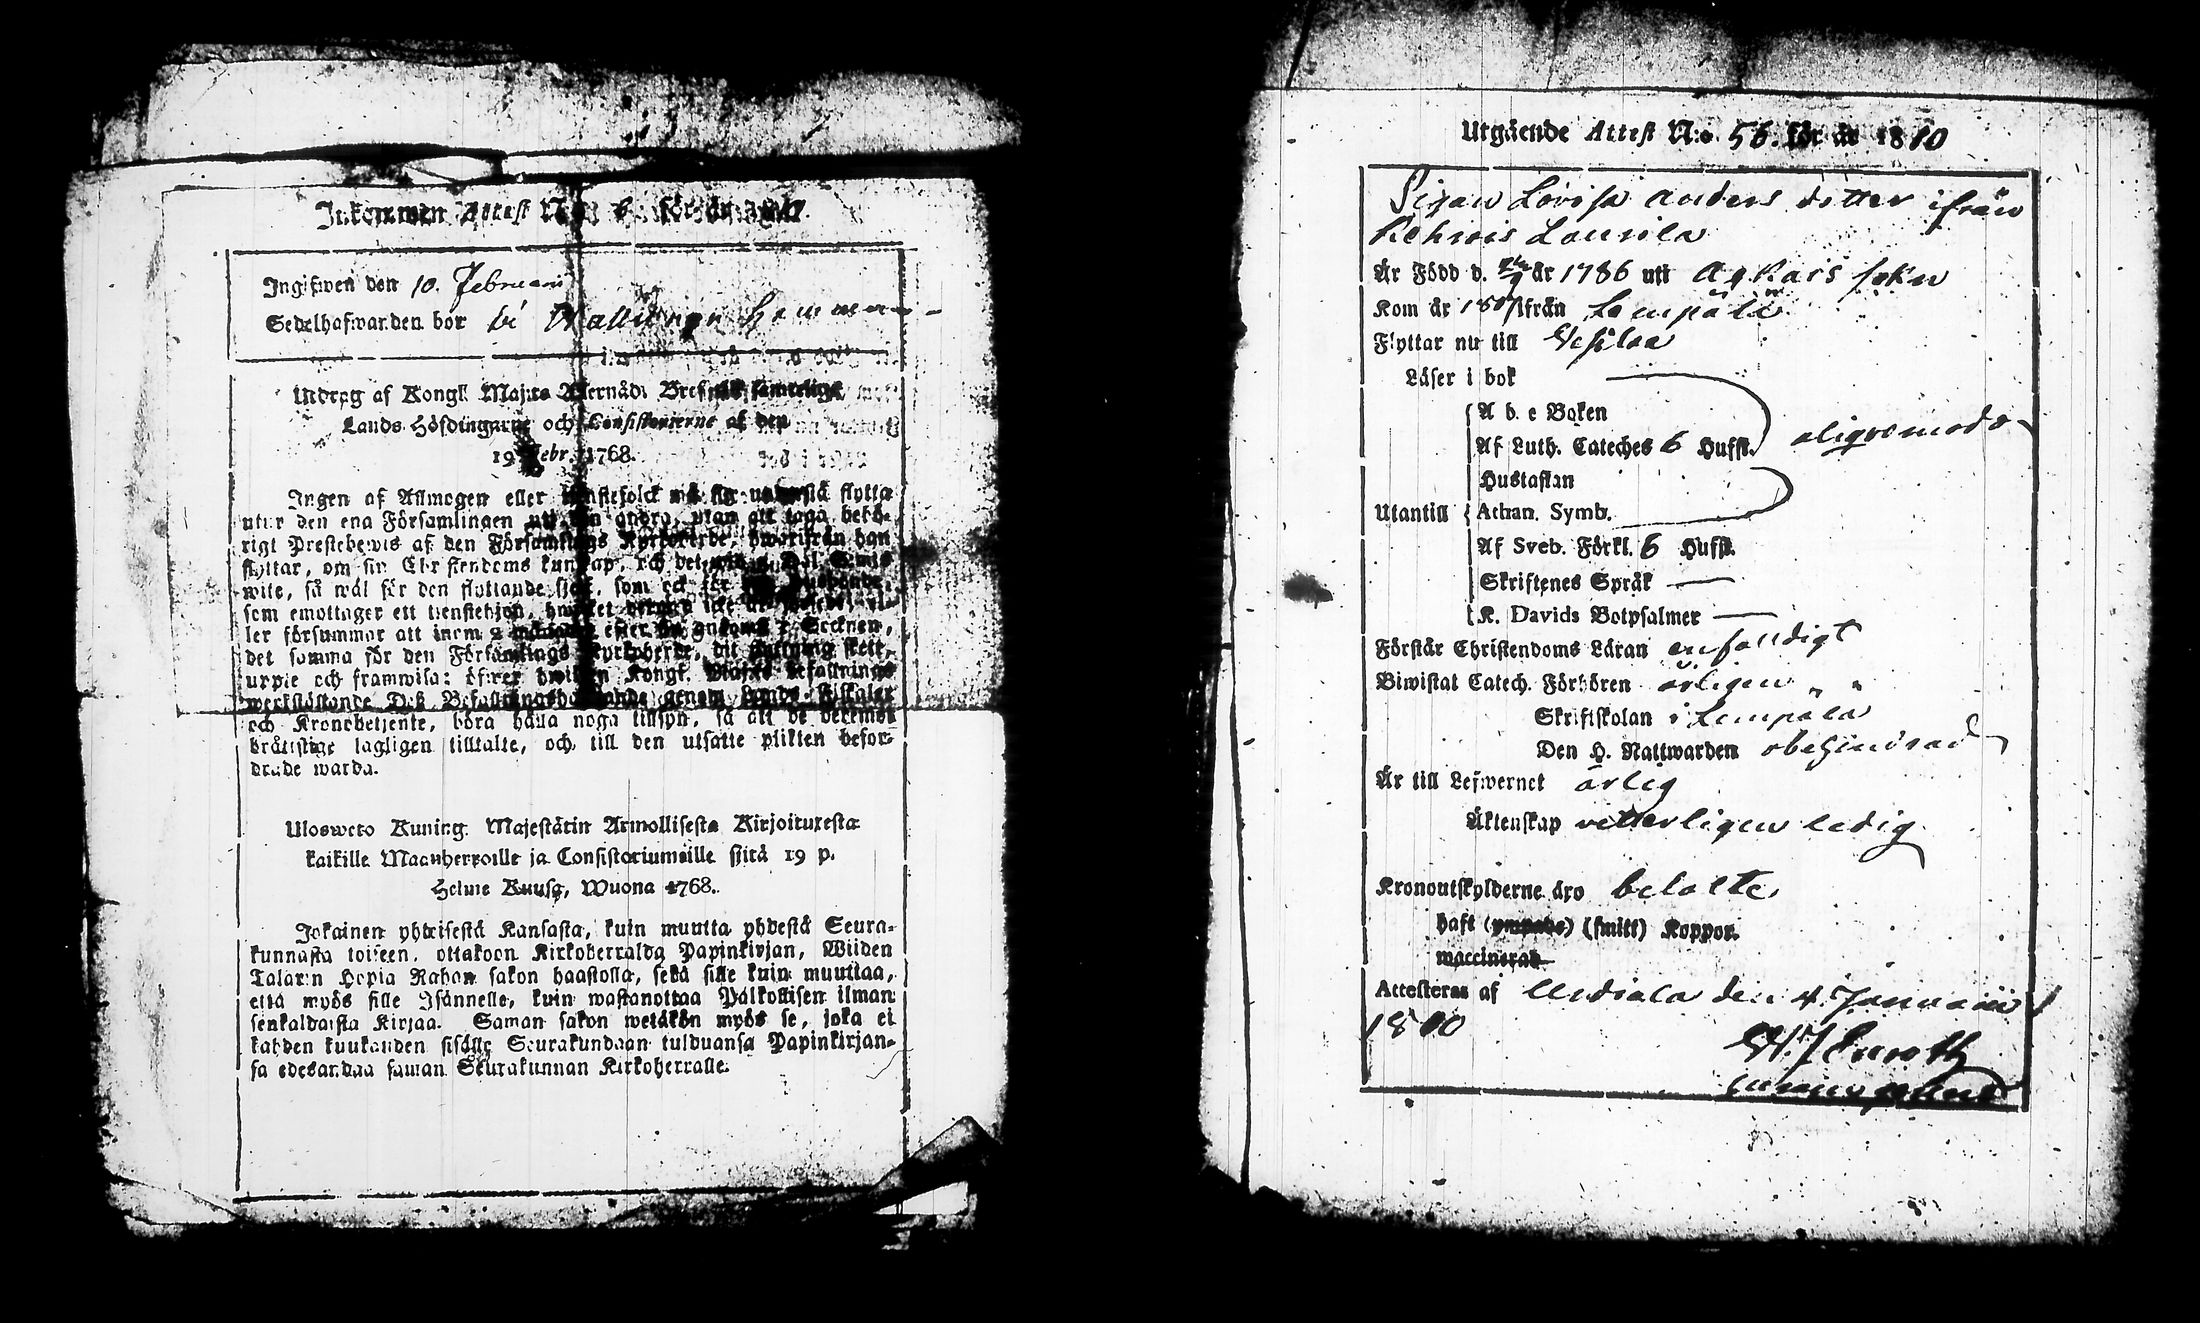 Inkommen Attest N:o 6. för år
Ingifwen den 10. Februarii
Sedelhafwanden bor
Utdrag af Kongl. Maj:ts Allernåd: Bref till samtelige
Lands-Höfdingarne och Consistorierne af den
19 Febr. 1768.
Ingen af Allmogen eller tienstefolck må sig flytta
utur den ena Församlingen uti den andra, utan att taga behö-
rigt Prestebewis af den Församlings Kyrkoherde, hworifrån han
flyttar, om sin Christendoms kunskap, och det wid Dal. S:mts
wite, så wäl för den flyttande sielf, som ock för den husbonde,
som emottager ett tienstehjon,
ler försummar att inom 2 månader efter ankomst i Socknen,
det samma för den Församlings Kyrkoherde, dit flyttning skett,
uppte och framwisa: öfwer hwilken Kongl. Maj:ts befallnings
werkställande Deß Befallningshafwande genom Lands-Fiskaler
och Kronobetjente, böra hålla noga tillsyn, så att de
brättslige lagligen tilltalte, och till den utsatte plikten befor-
drade warda.
Uloswето Kuning. Majestätin Armollisesta Kirjoituxesta
kaikille Maanherroille ja Consistoriumeille siitä 19 p.
Helme Kuusa, Wuona 1768.
Jokainen yhteisestä Kansasta, kuin muutta yhdestä Seura-
kunnasta toiseen, ottakoon Kirkoherralda Papinkirjan, Wiiden
Talarin Hopia Rahan sakon haastolla, sekä sille kuin muuttaa,
että myös sille Isännelle, kuin wastanottaa Palkollisen ilman
senkaldaista Kirjaa. Saman sakon wetäkön myös se, joka ei
kahden kuukauden sisälle Seurakundaan tulduansa Papinkirjan-
sa edesandaa saman Seurakunnan Kirkoherralle.
Utgående Attest N:o 56. för år 1810
Pigan Lovisa Anders dotter ifrån
Laurila
Är Född d. år 1786 uti Ackais sokn
Kom år ifrån Lempälä
Flyttar nu till Vesilax
Läser i bok
A b c Boken
Af Luth. Cateches 6 Hufst. aliqvomodo
Hustaflan
Utantill Athan. Symb.
Af Sveb. Förkl. 6 Hufst.
Skriftenes Språk —
K. Davids Botpsalmer —
Förstår Christendoms Läran enfalldigt
Biwistat Catech. Förhören årligen
Skriftskolan i Lempälä
Den H. Nattwarden obehindrad
Är till Lefwernet ärlig
Äktenskap vetterligen ledig
Kronoutskylderne äro betalte.
haft (ympade) (smitt) Koppor.
waccinerad
Attesteras af Urdiala den 4 Januarii
1810